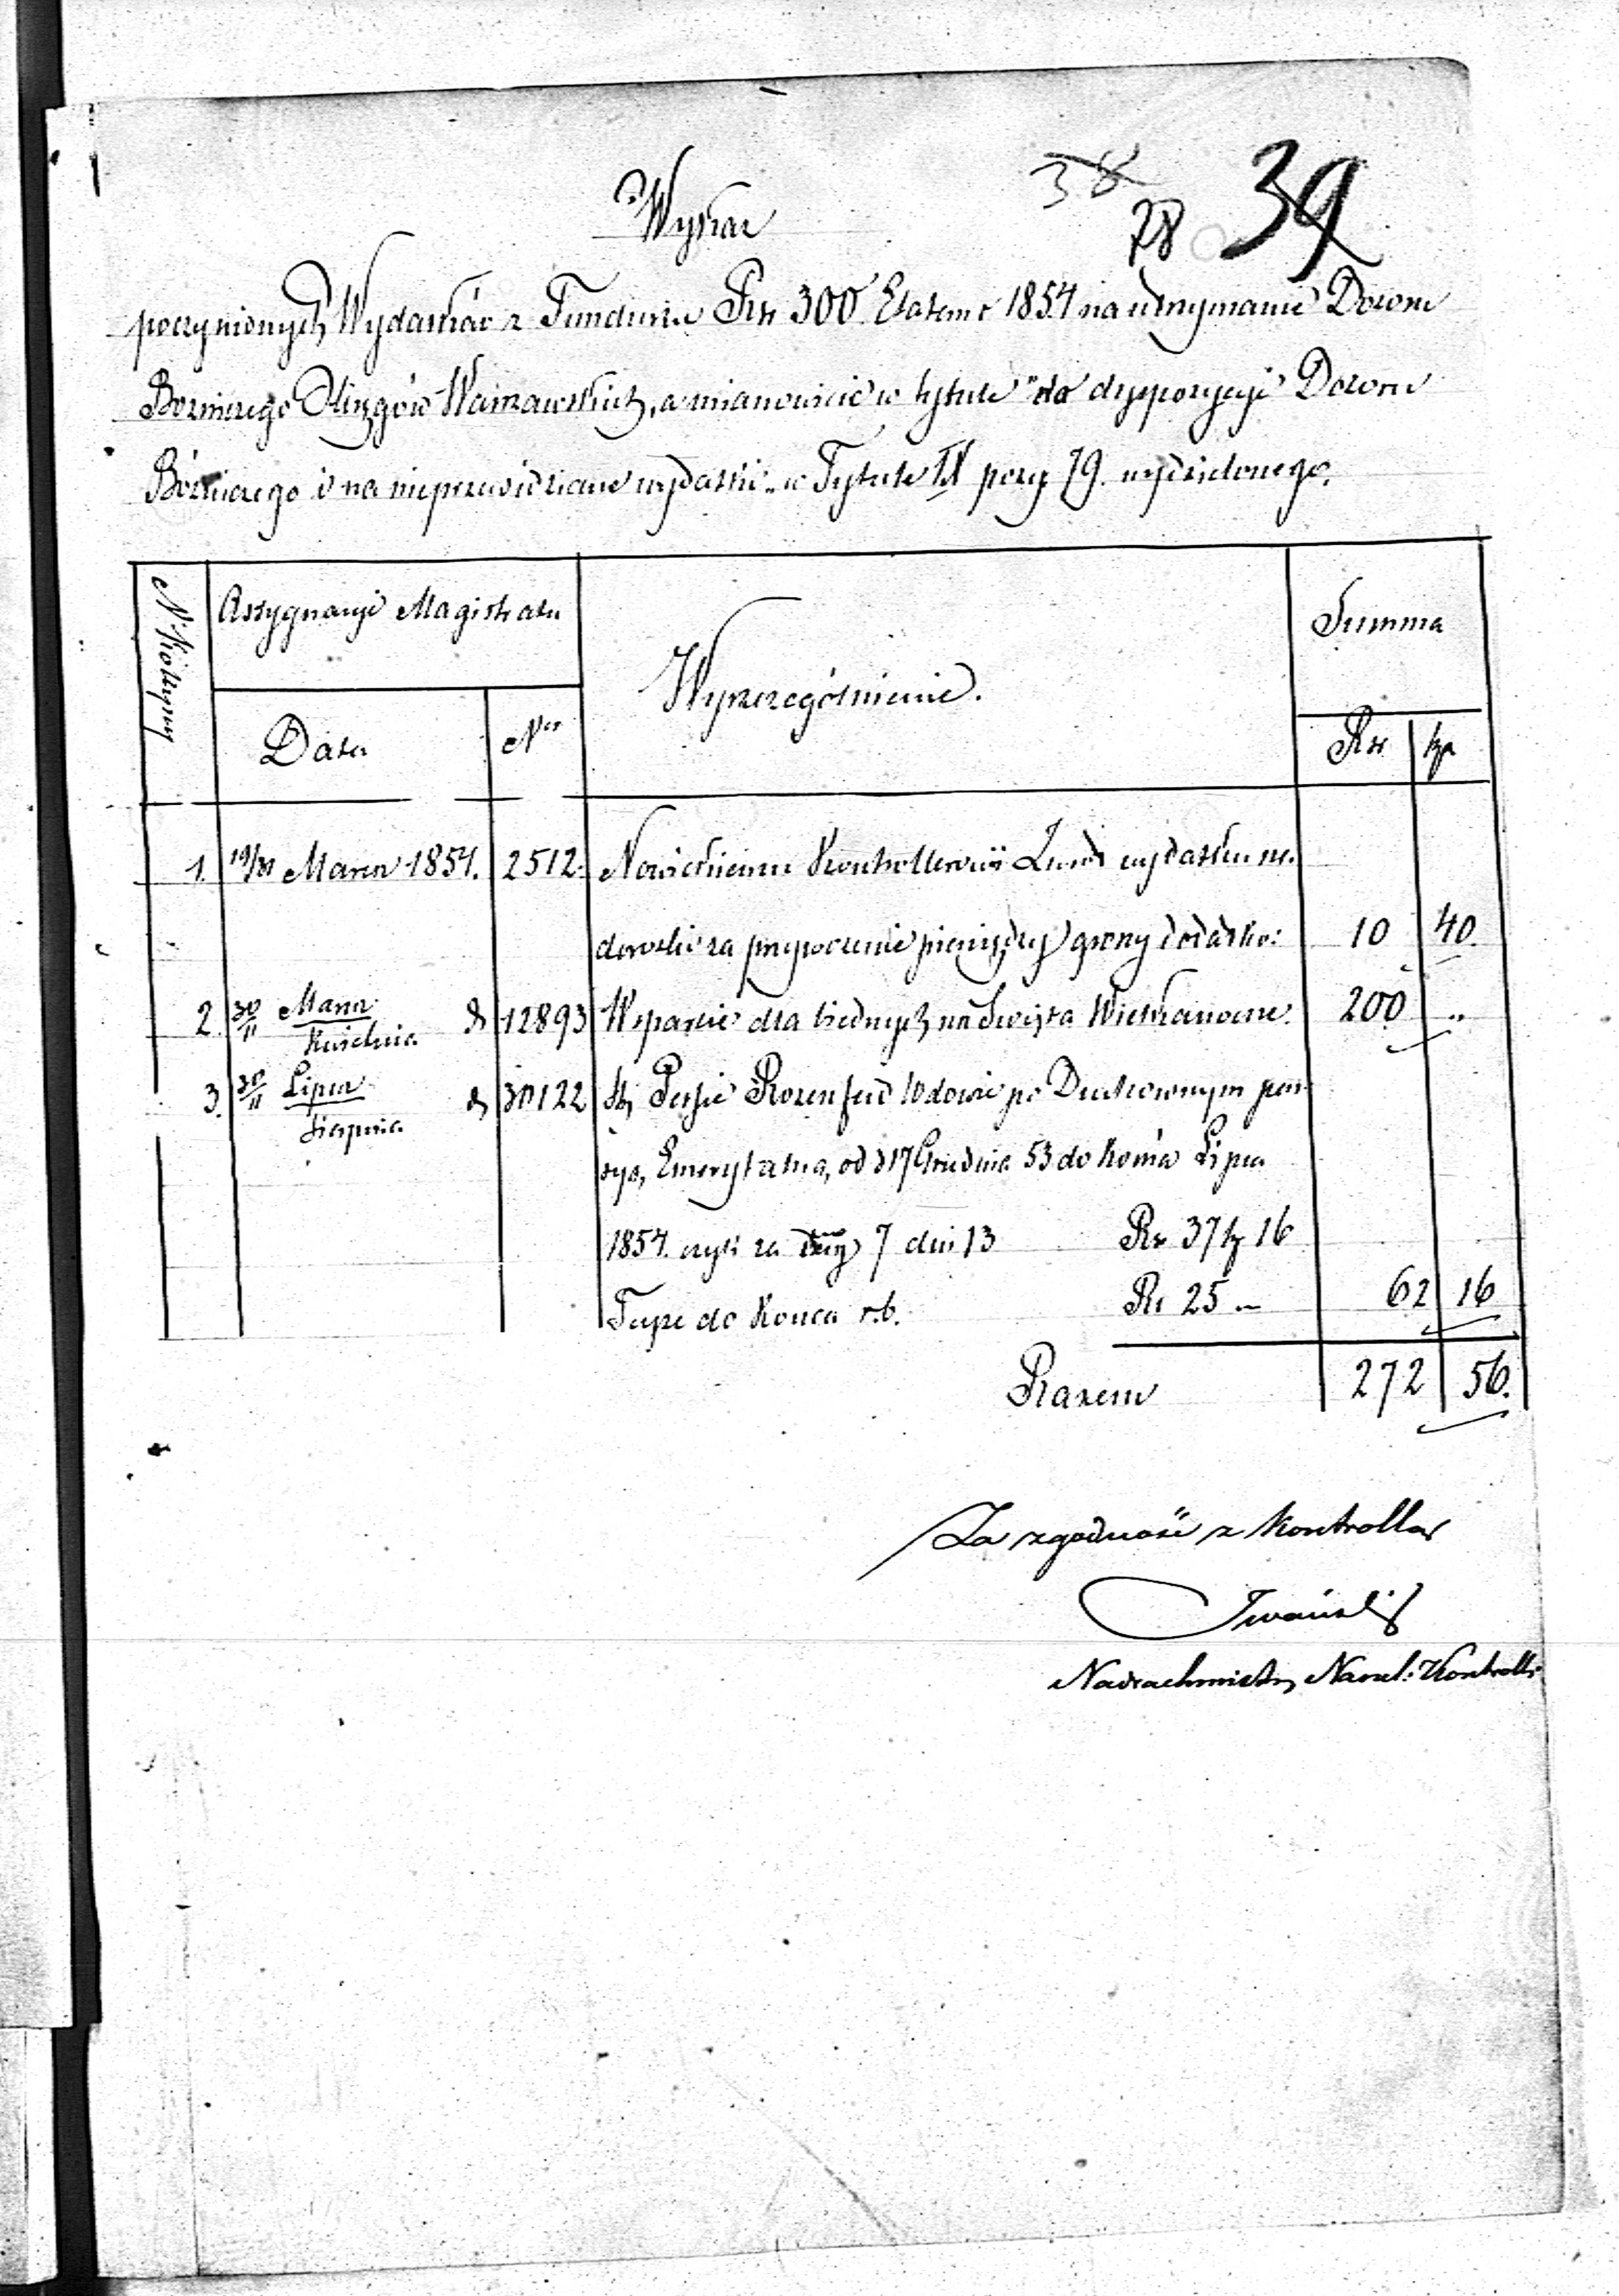 38 78 39
Wykaz
poczynionych Wydatków z Funduszu Rsr 300 Etatem r 1854 na utrzymanie Dozoru
Bożniczego Okręgów Warszawskich, a mianowicie w tytule "do dyspozycyi Dozoru
Bóżniczego i na nieprzewidziane wydatki" w Tytule IX pozy 79. wydzielonego.
N. Kolejny
Assygnacyi Magistratu
Wyszczególnienie.
Summa
Data
Ner
Rsr
kp
1. 19/31 Marca 1854. 2512. Kontrollerowi wydatku na
dorożki za przywożenie pieniędzy 10 40.
2. 30/11 Marca/Kwietnia d 12893 Wsparcie dla biednych na Święta Wielkanocne. 200 „
3. 30/11 Lipca/Sierpnia d 30122 Rozenfeld Wdowie po Duchownym pen
syą Emerytalną, od d 17 Grudnia 53 do końca Lipca
1854. czyli za 7 dni 13 Rsr 37 kp 16
Tejże do końca r.b. Rs 25 „ 62 16
Razem 272 56.
Za zgodność z Kontrollą
Iwański
Nadrachmistrz Naczel: Kontroll: